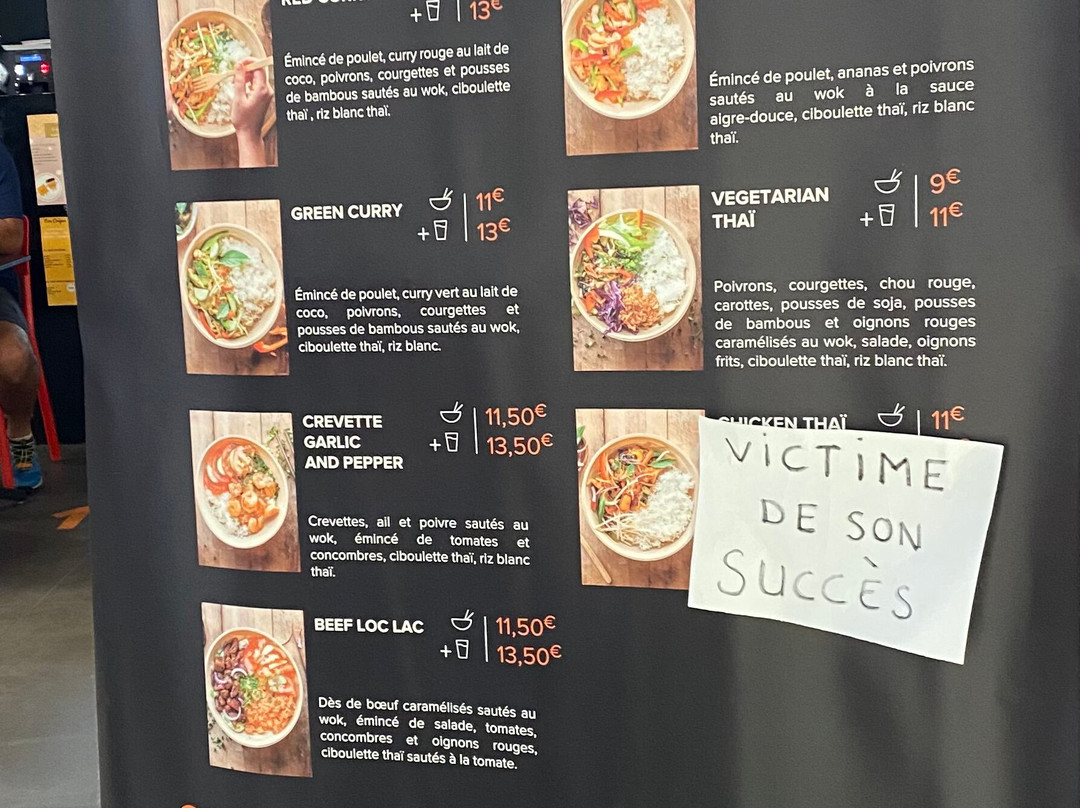 13€
+
Émincé de poulet, curry rouge au lait de
coco, poivrons, courgettes et pousses
de bambous sautés au wok, ciboulette
thaï , riz blanc thaï.
GREEN CURRY
11€
+ 13€
Émincé de poulet, curry vert au lait de
coco, poivrons, courgettes et
pousses de bambous sautés au wok,
ciboulette thaï, riz blanc.
CREVETTE
GARLIC
AND PEPPER
11,50€
+ 13,50€
Crevettes, ail et poivre sautés au
wok, émincé de tomates et
concombres, ciboulette thaï, riz blanc
thaï.
BEEF LOC LAC
11,50€
+ 13,50€
Dès de bœuf caramélisés sautés au
wok, émincé de salade, tomates,
concombres et oignons rouges,
ciboulette thaï sautés à la tomate.
Émincé de poulet, ananas et poivrons
sautés au wok à la sauce
aigre-douce, ciboulette thaï, riz blanc
thaï.
VEGETARIAN
THAÏ
9€
+ 11€
Poivrons, courgettes, chou rouge,
carottes, pousses de soja, pousses
de bambous et oignons rouges
caramélisés au wok, salade, oignons
frits, ciboulette thaï, riz blanc thaï.
CHICKEN THAÏ
11€
VICTIME
DE SON
SUCCÈS